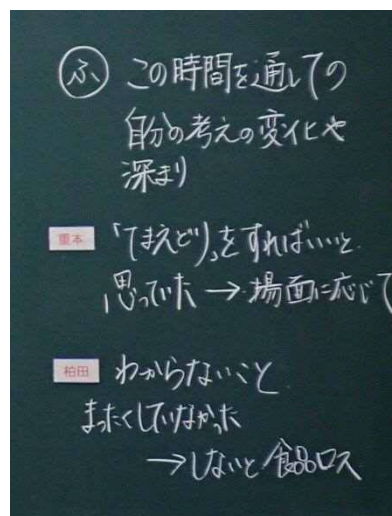 ふ この時間を通しての
自分の考えの変化や
深まり
重本 「てまえどり」をすればいいと
思っていた → 場面に応じて
柏田 わからないこと
まったくしていなかった
→しないと食品ロス